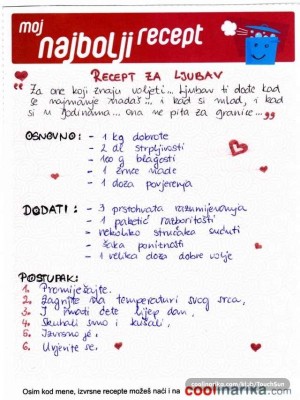 moj
najbolji recept
RECEPT ZA LJUBAV
"Za one koji znaju voljeti... Ljubav ti dođe kad
se najmanje nadaš... i kad si mlad, i kad
si u godinama... Ona ne pita za granice..."
OSNOVNO: - 1 kg dobrote
- 2 dl strpljivosti
- 100 g blagosti
- 1 zrnce nade
- 1 doza povjerenja
DODATI: - 3 prstohvata razumijevanja
- 1 paketić razboritosti
- nekoliko stručaka sućuti
- šaka poniznosti
- 1 velika doza dobre volje
POSTUPAK:
1. Promiješajte.
2. Zagrijte na temperaturi svog srca,
3. I imati ćete lijep dan,
4. Skuhali smo i kušali,
5. Izvrsno je.
6. Uvjerite se.
coolinarika.com/klub/TouchSun
Osim kod mene, izvrsne recepte možeš naći i na coolinarika.com